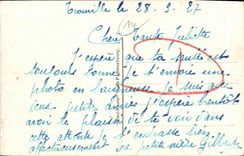 Trouville le 28-3-27
Chère Tante Juliette
J'espère que ta santé est
toujours bonne je t'envoie une
photo en
petits j'espère bientôt
avoir le plaisir de te voir dans
cette attente je t'embrasse bien
affectueusement ta petite nièce Gilberte